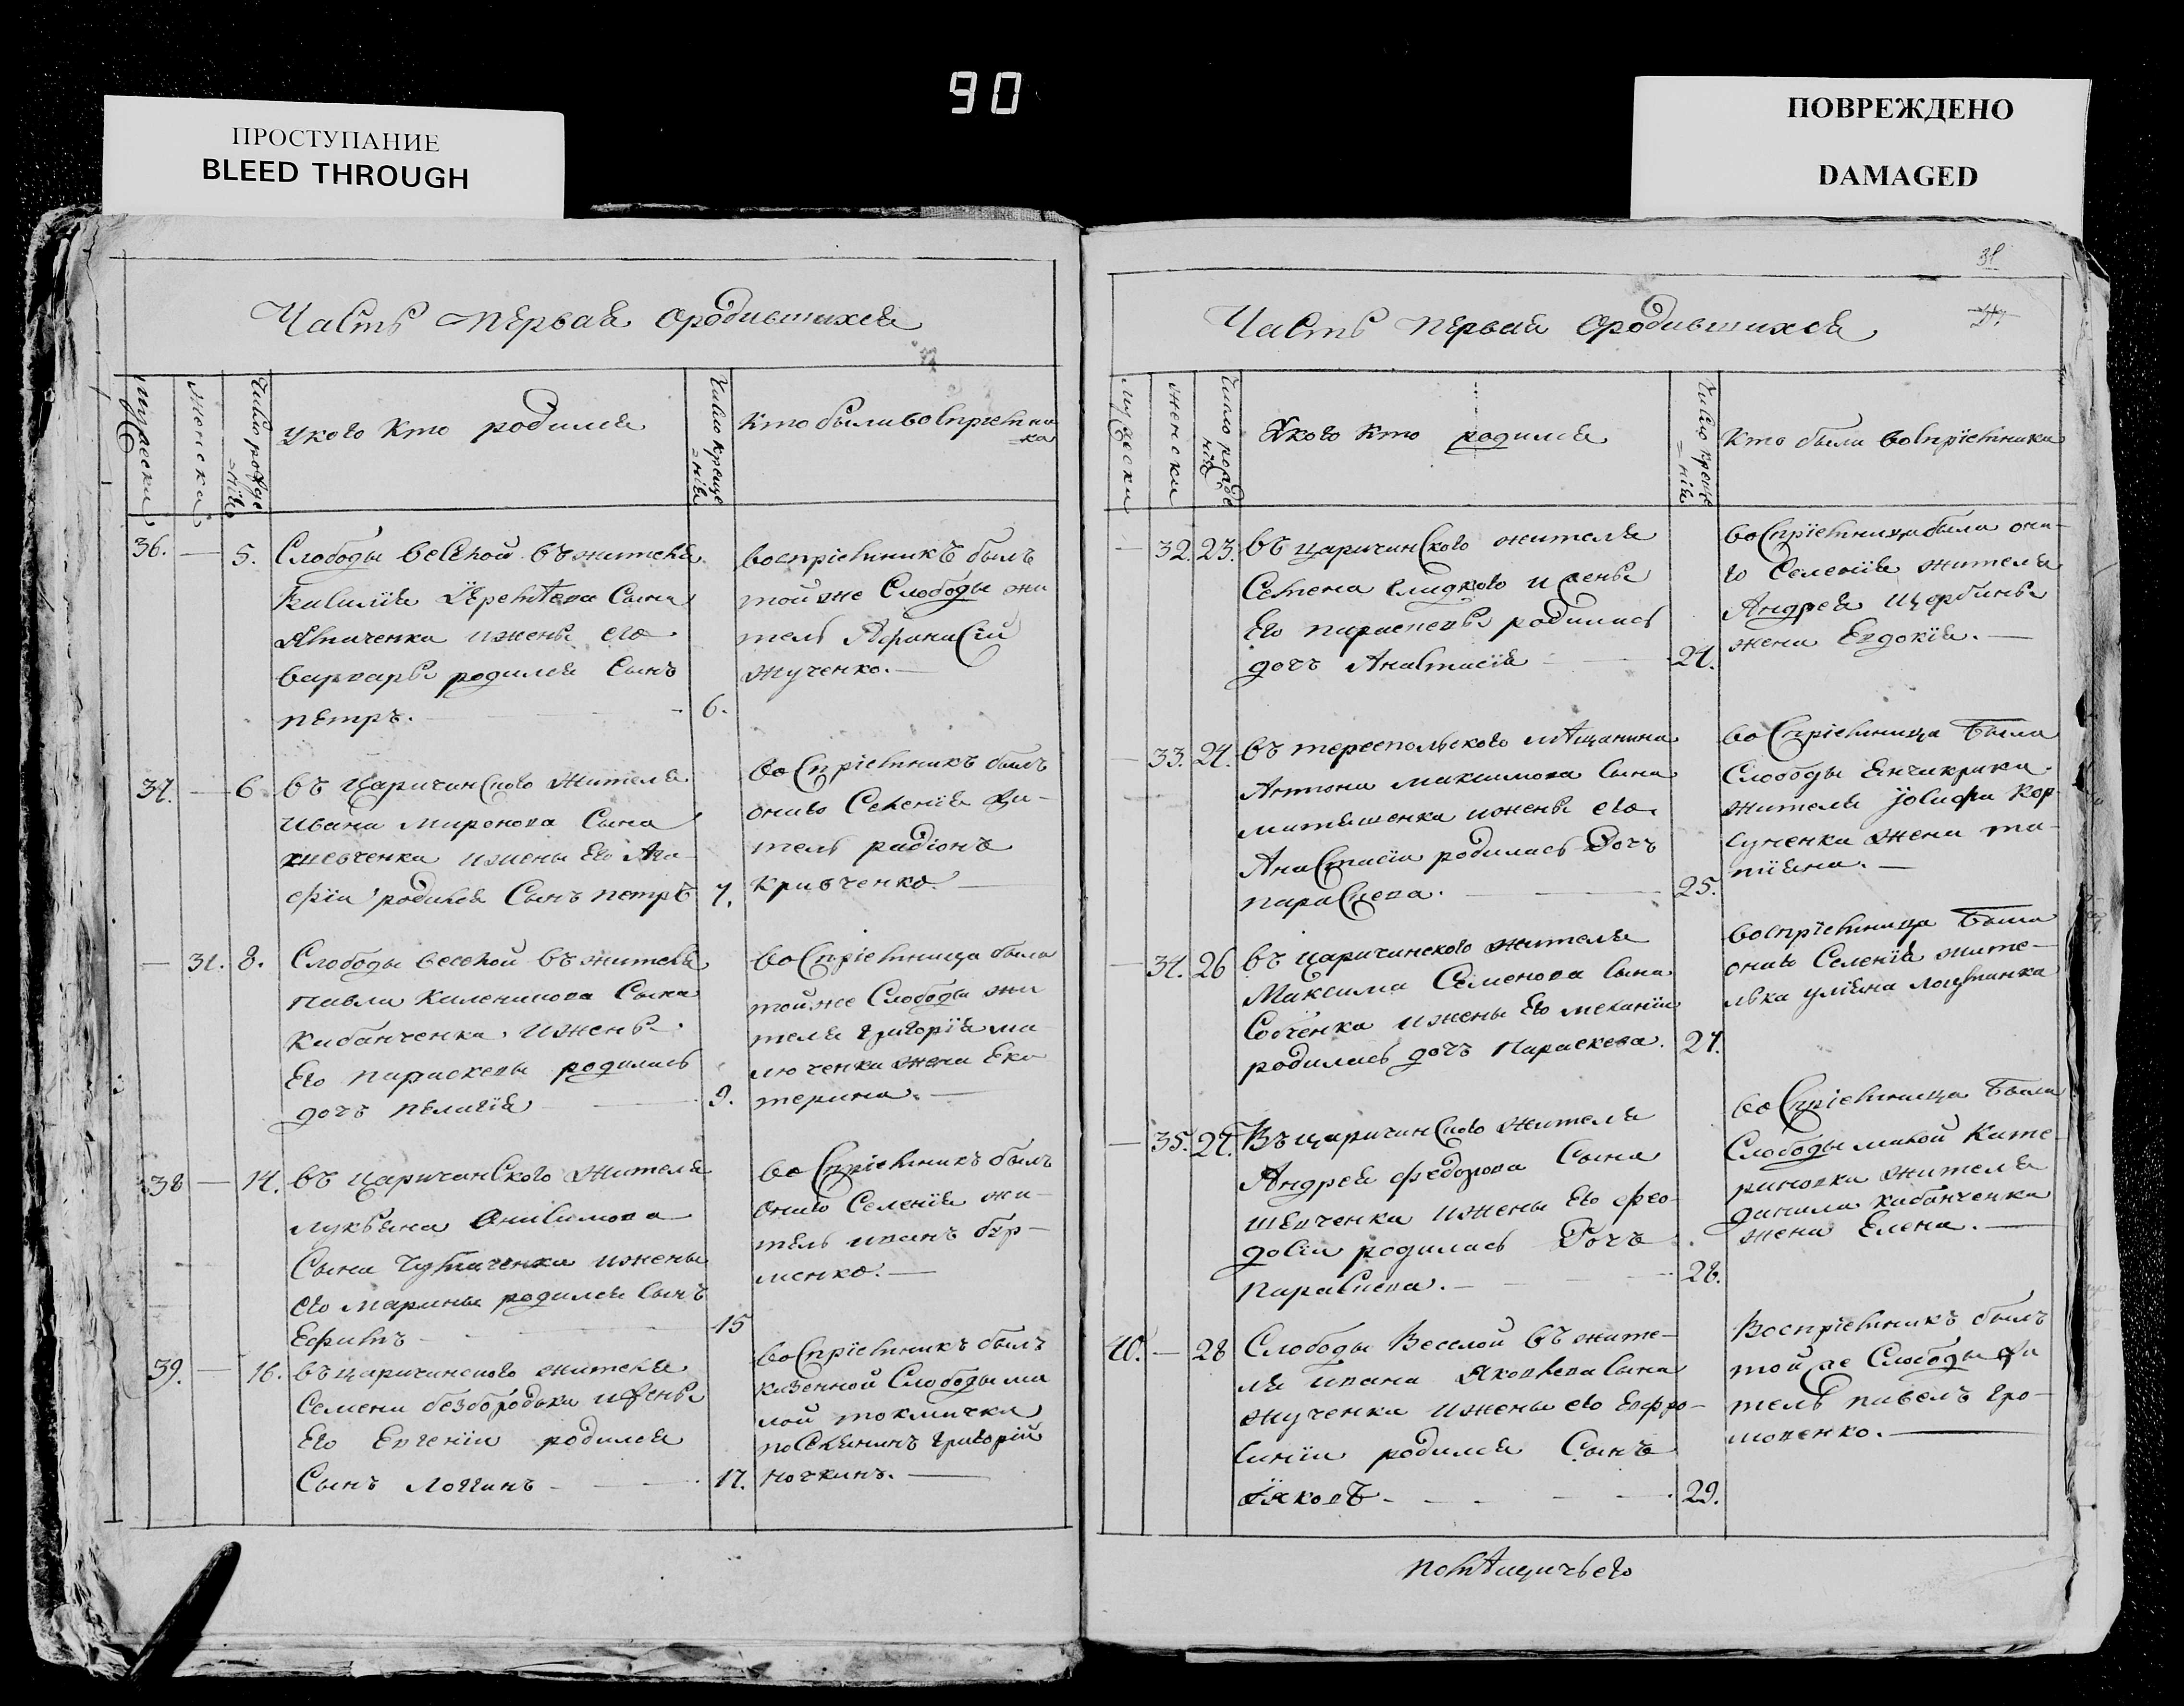 90
ПРОСТУПАНИЕ
BLEED THROUGH
ПОВРЕЖДЕНО
DAMAGED
Часть первая ородившихся
мужески
женски
Число рожде
=нія
укого кто родился
Число креще
=нія
кто были воспріємни
ка
36. — 5. Слободы веселой въ жителя
Терентева сына
и жены его
варвары родился сынъ
петръ. — 6.
воспріємникъ былъ
той же Слободы жи
тель Афанасій
жученко. —
37. — 6 въ царичинского жителя
ивана миронова сына
шевченка и жены его Ага
ефіи родился сынъ петръ 7.
воспріємникъ былъ
оного Селенія жи-
тель радіонъ
кривченко. —
— 31. 8. Слободы веселой въ жителя
павла каленикова сына
кабанченка и жены
его параскевы родилась
дочъ пелагія — 9.
воспріємница была
той же Слободы жи
теля григорія ма
люченка жена Ека
терина. —
38 — 14. въ царичинского жителя
лукьяна Анисимова
сына и жены
его марины родился сынъ
Ефимъ — 15
воспріємникъ былъ
оного Селенія жи-
тель иванъ бур-
менко. —
39. — 16. въ царичинского жителя
Семена безбородька и жены
Его Евгеніи родился
Сынъ Логинъ — 17.
воспріємникъ былъ
казенной Слободы ма
лой токмачки
поселянинъ григорій
ночкинъ. —
31
Часть первая ородившихся
мужески
женски
Число рожде
нія
Укого кто родился
Число креще
=нія
кто были воспріємники
— 32. 23. въ царичинского жителя
Семена гладкого и жены
Его параскевы родилась
дочъ Анастасія — 24.
воспріємница была она-
го Селенія жителя
Андрея щербины
жена Евдокія. —
— 33. 24. въ тереспольского мѣщанина
Антона максимова сына
митяшенка и жены его
Анастасіи родилась Дочъ
параскева. — 25.
воспріємница была
Слободы Янчикрика
жителя іосифа кор-
сученка жена та-
тіяна. —
— 34. 26 въ царичинского жителя
Максима Семенова сына
Собченка и жены Его меланіи
родилась дочъ Параскева. 27.
воспріємница была
оного Селенія жите-
лька уліяна
— 35. 27. Въ царичинского жителя
Андрея федорова Сына
шевченка и жены Его фео-
досіи родилась Дочъ
параскева. — 28.
воспріємница была
Слободы малой кате
риновки жителя
данила кабанченка
жена Елена. —
40. — 28 Слободы Веселой въ жите-
ля ивана Яковлева сына
жученка и жены его Евфро-
синіи родился Сынъ
Іяковъ — 29.
Воспріємникъ былъ
той же Слободы жи
тель павелъ гро-
мовенко. —
помѣщичьего